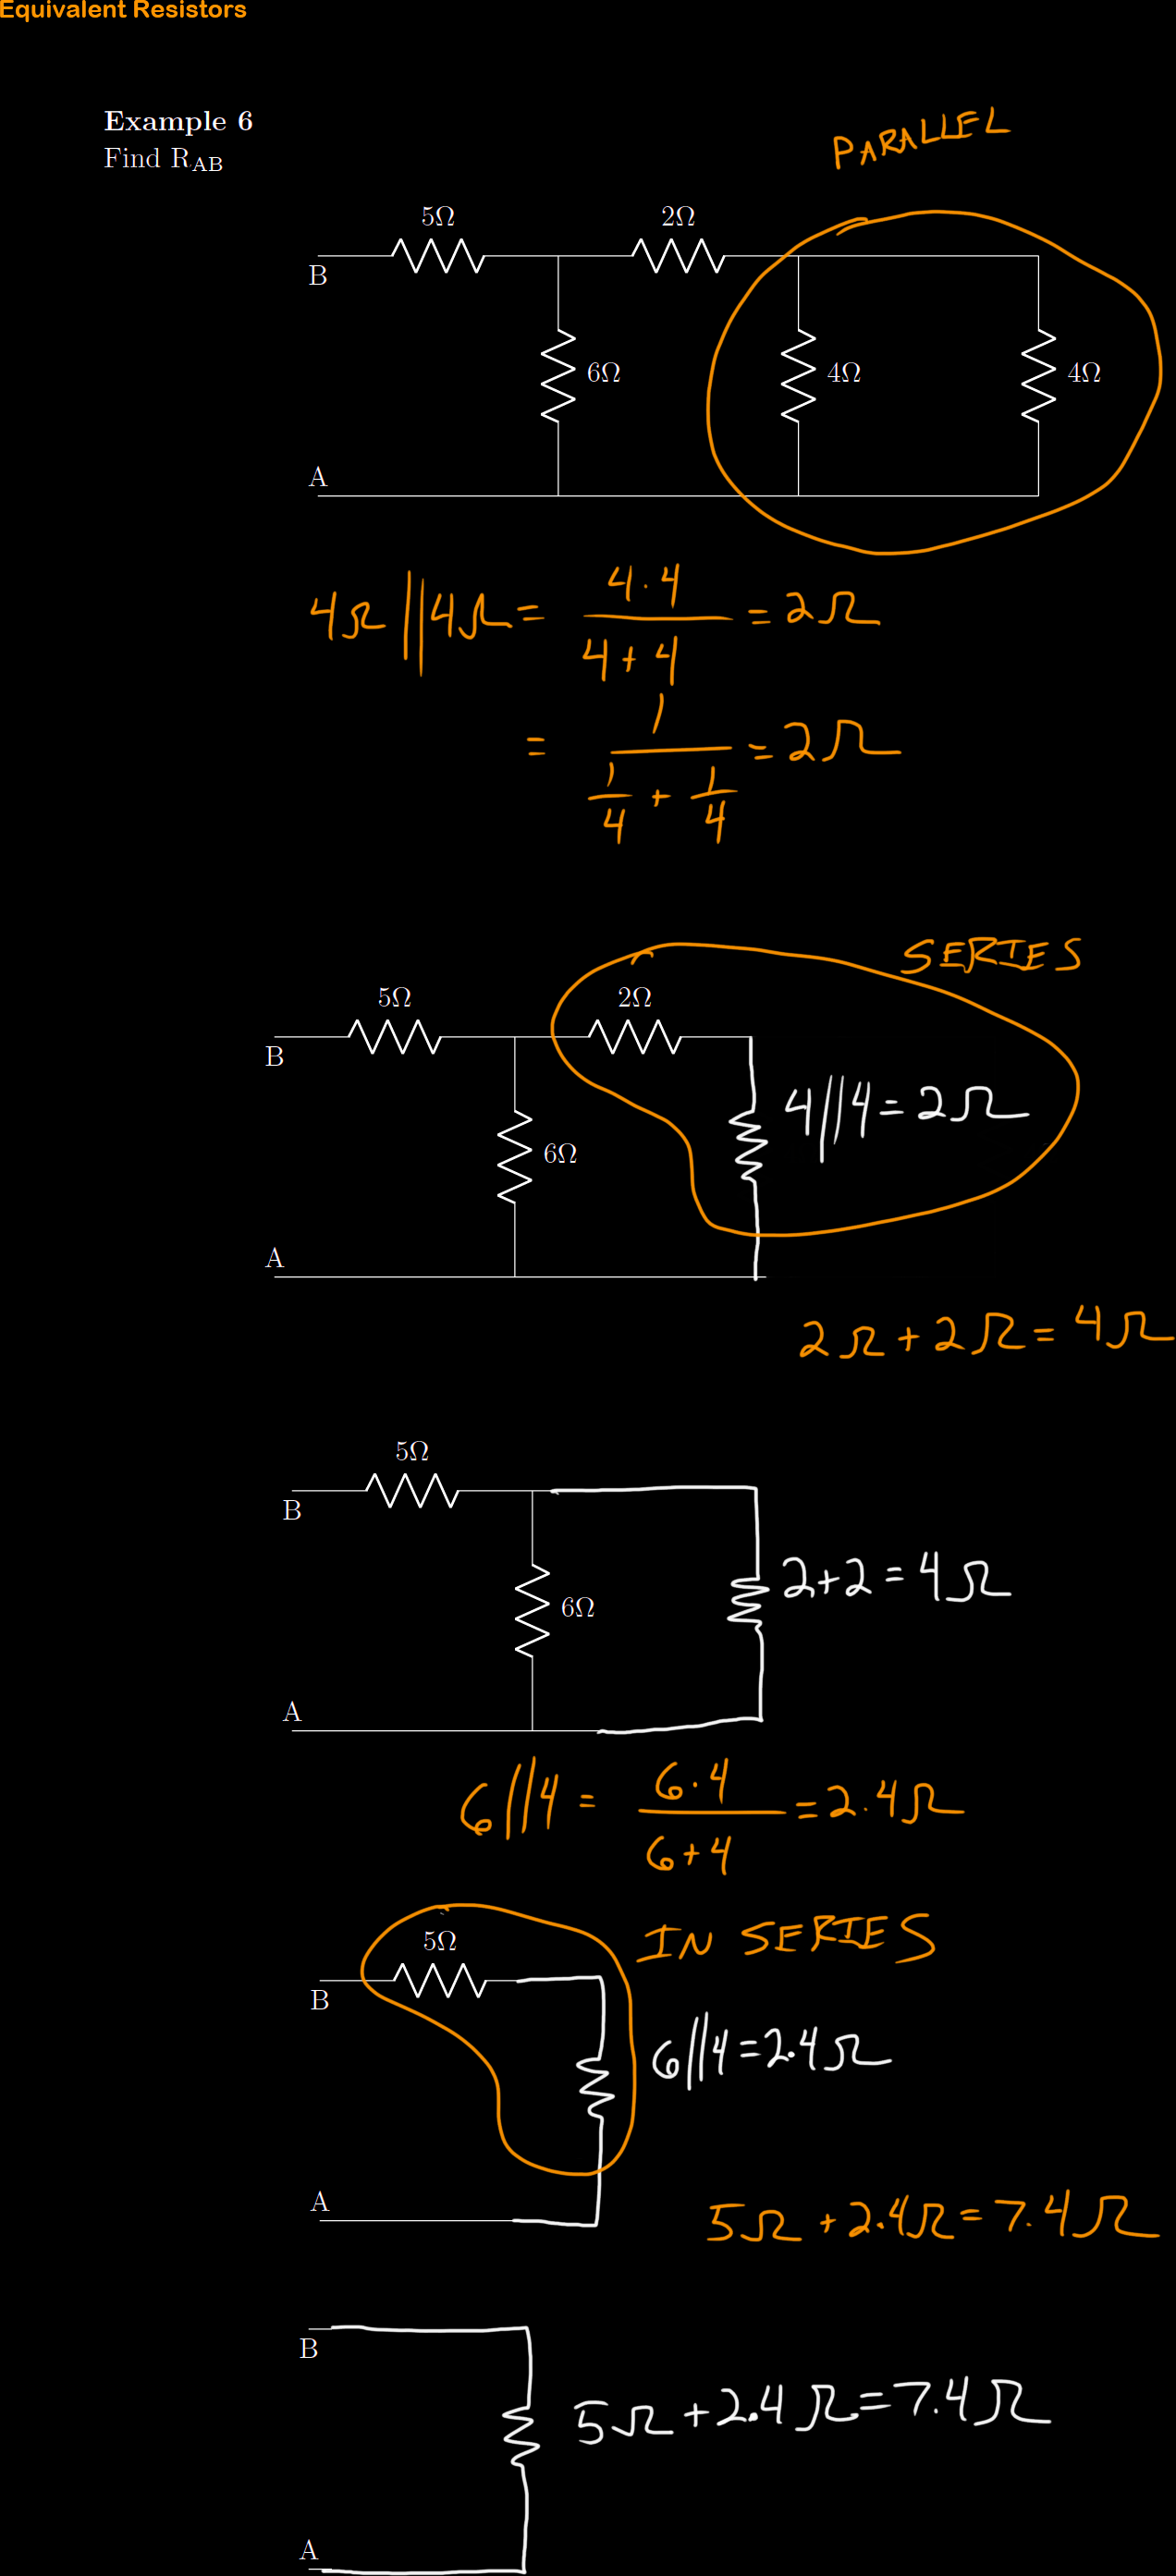 Equivalent Resistors
Example 6
Find R_AB
PARALLEL
5Ω 2Ω
B
6Ω 4Ω 4Ω
A
4Ω||4Ω = 4·4/4+4 = 2Ω
= 1/(1/4 + 1/4) = 2Ω
SERIES
5Ω 2Ω
B
4||4 = 2Ω
6Ω
A
2Ω + 2Ω = 4Ω
5Ω
B
2+2 = 4Ω
6Ω
A
6||4 = 6·4/6+4 = 2.4Ω
IN SERIES
5Ω
B
6||4 = 2.4Ω
A
5Ω + 2.4Ω = 7.4Ω
B
5Ω + 2.4Ω = 7.4Ω
A